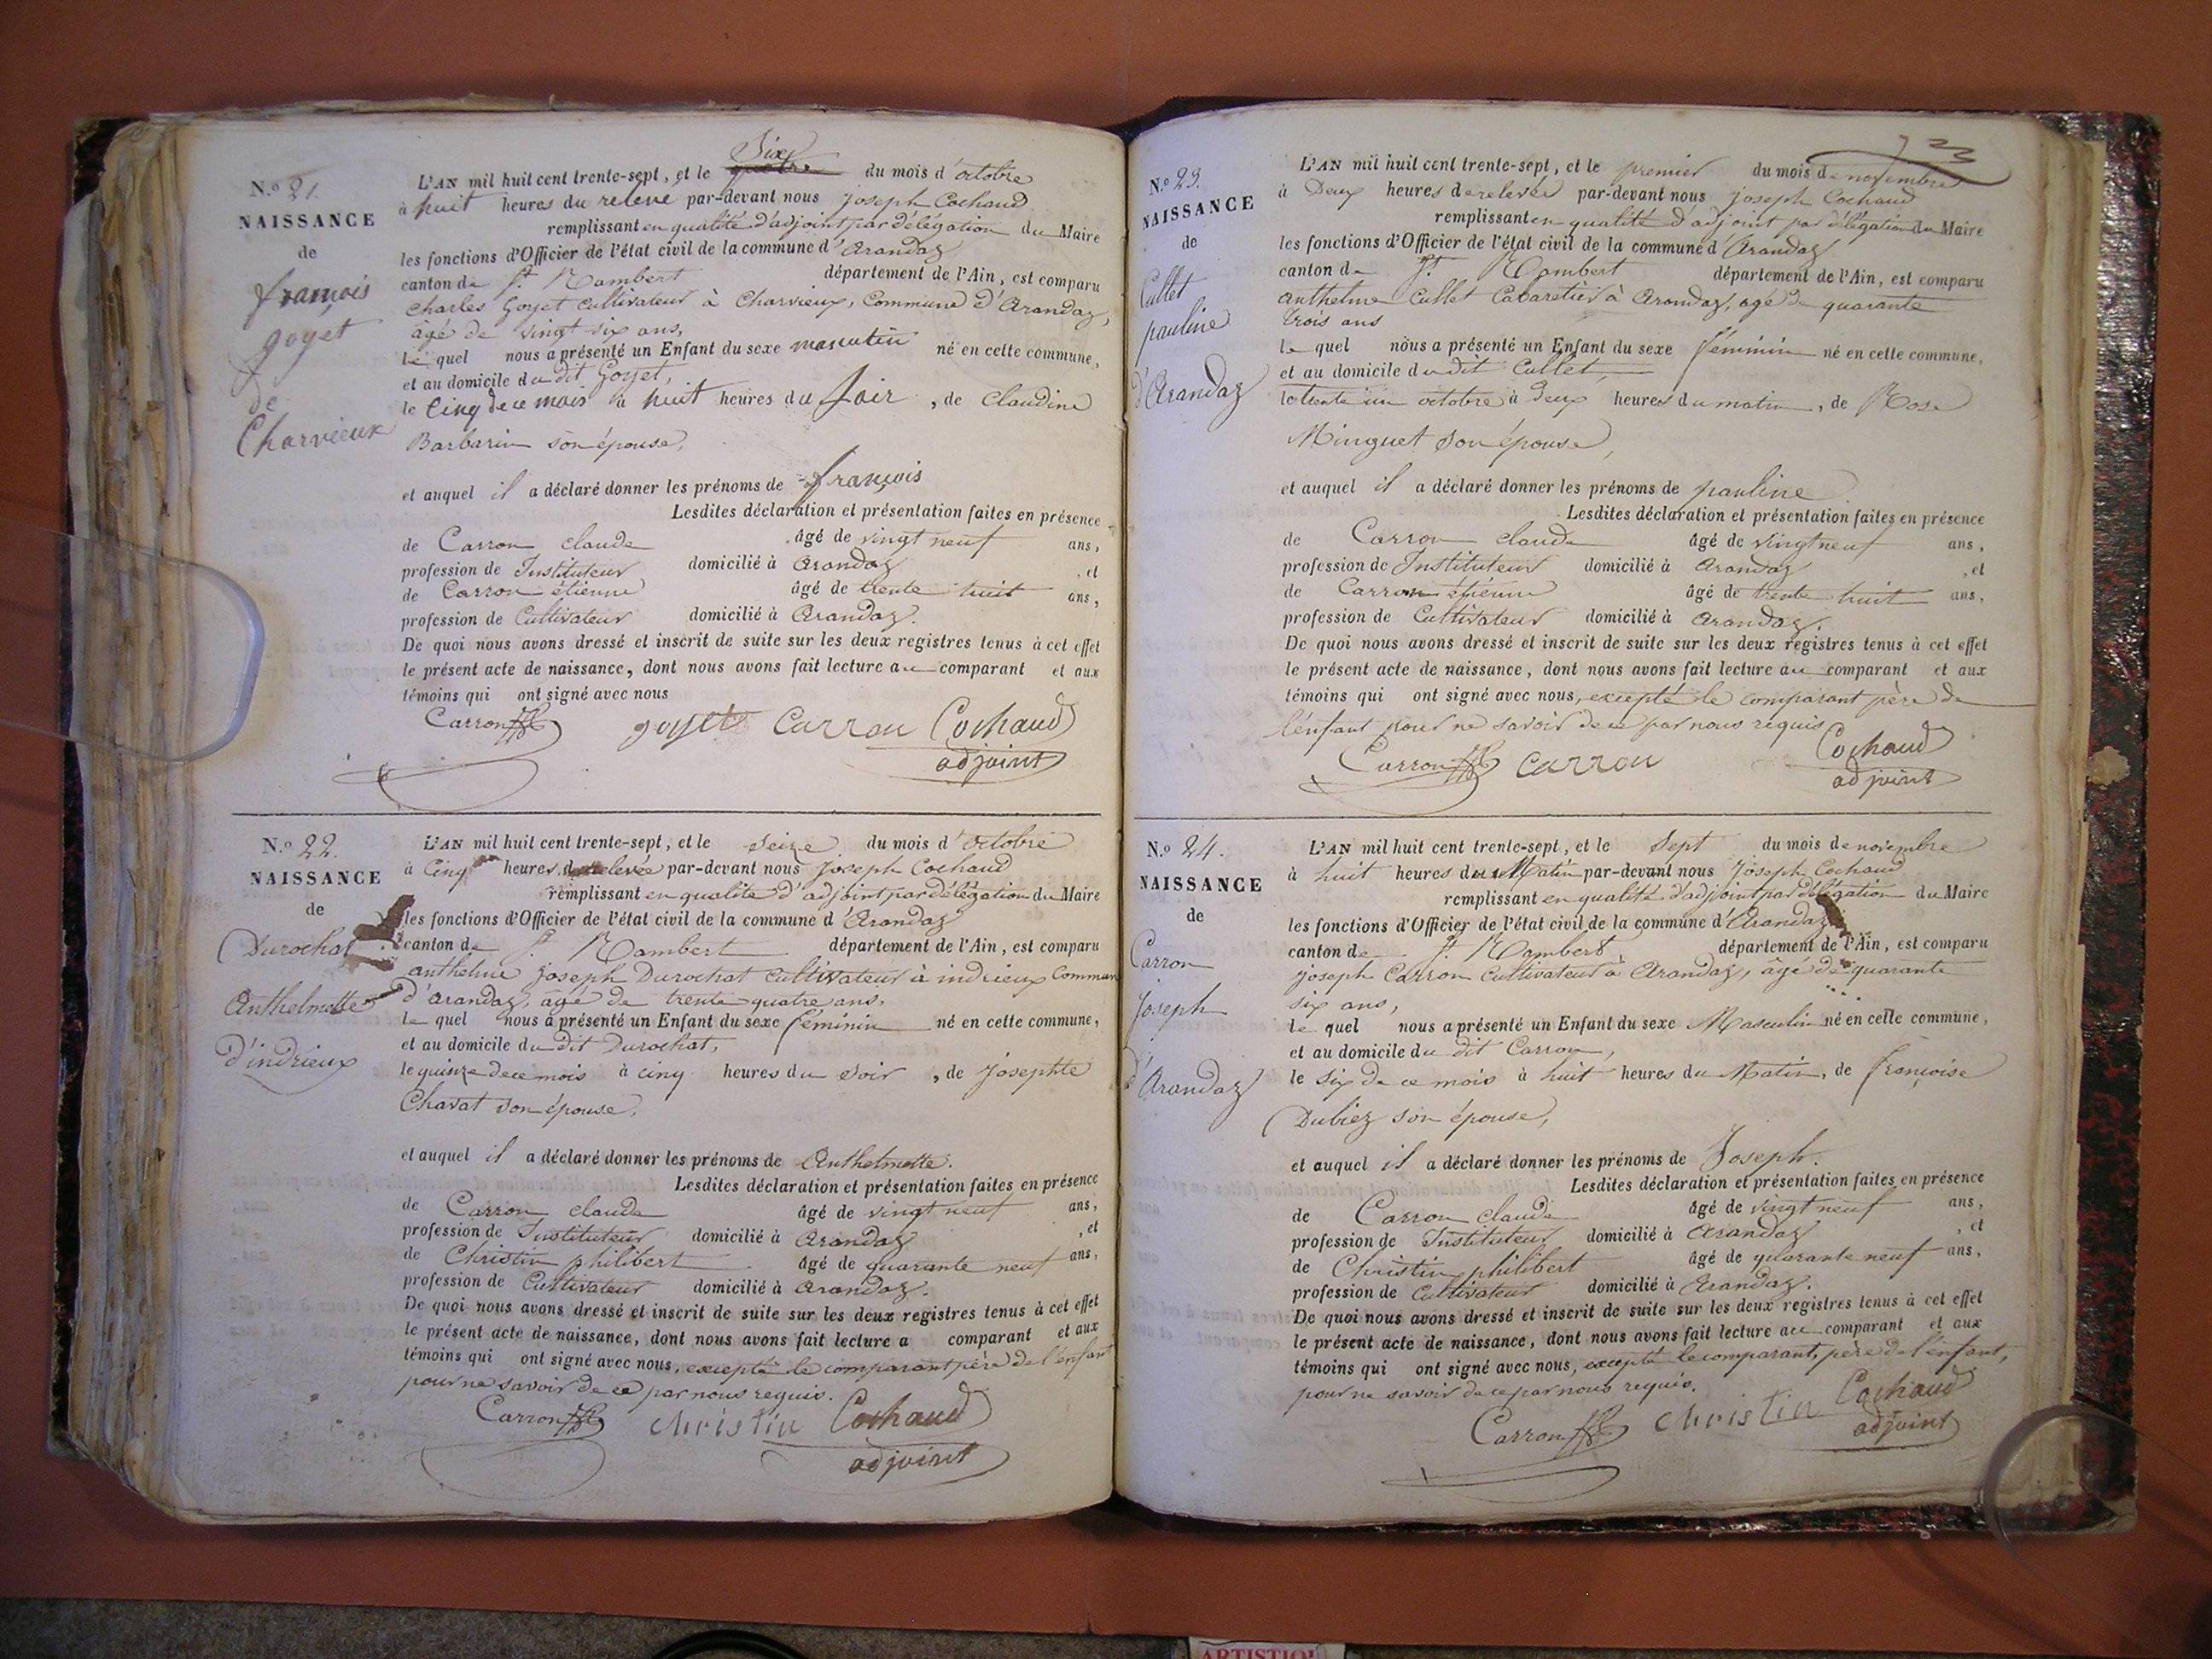 N.o 21.
NAISSANCE
de
françois
goyet
de
Charvieux
Six
L'AN mil huit cent trente-sept, et le quatre du mois d'octobre
à huit heures du relevé par-devant nous joseph Cochaud
remplissant en qualité d'adjoint par délégation du Maire
les fonctions d'Officier de l'état civil de la commune d'Arandaz
canton de St. Rambert département de l'Ain, est comparu
charles Goyet cultivateur à Charvieux, Commune d'Arandaz,
âgé de vingt six ans,
le quel nous a présenté un Enfant du sexe masculin né en cette commune,
et au domicile du dit Goyet,
le cinq de ce mois à huit heures du soir, de Claudine
Barbarin son épouse,
et auquel il a déclaré donner les prénoms de françois
Lesdites déclaration et présentation faites en présence
de Carron claude âgé de vingt neuf ans,
profession de Instituteur domicilié à Arandaz, et
de Carron étienne âgé de trente huit ans,
profession de Cultivateur domicilié à Arandaz.
De quoi nous avons dressé et inscrit de suite sur les deux registres tenus à cet effet
le présent acte de naissance, dont nous avons fait lecture au comparant et aux
témoins qui ont signé avec nous
Carron goyet Carron Cochaud
adjoint
N.o 22.
NAISSANCE
de
Durochat
Anthelmette
d'indrieux
L'AN mil huit cent trente-sept, et le seize du mois d'octobre
à Cinq heures de relevée par-devant nous joseph Cochaud
remplissant en qualité d'adjoint par délégation du Maire
les fonctions d'Officier de l'état civil de la commune d'Arandaz
canton de St. Rambert département de l'Ain, est comparu
anthelme joseph Durochat cultivateur à indrieux Commune
d'Arandaz, âgé de trente quatre ans,
le quel nous a présenté un Enfant du sexe féminin né en cette commune,
et au domicile du dit Durochat,
le quinze de ce mois à cinq heures du soir, de josephte
Chavat son épouse,
et auquel il a déclaré donner les prénoms de Anthelmette.
Lesdites déclaration et présentation faites en présence
de Carron claude âgé de vingt neuf ans,
profession de Instituteur domicilié à Arandaz, et
de Christin philibert âgé de quarante neuf ans,
profession de Cultivateur domicilié à Arandaz.
De quoi nous avons dressé et inscrit de suite sur les deux registres tenus à cet effet
le présent acte de naissance, dont nous avons fait lecture a comparant et aux
témoins qui ont signé avec nous, excepté le comparant père de l'enfant
pour ne savoir de ce par nous requis.
Carron christin Cochaud
adjoint
N.o 23.
NAISSANCE
de
Cullet
pauline
d'Arandaz
L'AN mil huit cent trente-sept, et le premier du mois de novembre
à Deux heures de relevée par-devant nous joseph Cochaud
remplissant en qualité d'adjoint par délégation du Maire
les fonctions d'Officier de l'état civil de la commune d'Arandaz
canton de St. Rambert département de l'Ain, est comparu
anthelme Cullet Cabaretier à Arandaz, âgé de quarante
trois ans
le quel nous a présenté un Enfant du sexe féminin né en cette commune,
et au domicile du dit Cullet,
le trente un octobre à deux heures du matin, de Rose
Minguet son épouse,
et auquel il a déclaré donner les prénoms de pauline
Lesdites déclaration et présentation faites en présence
de Carron claude âgé de vingt neuf ans,
profession de Instituteur domicilié à Arandaz, et
de Carron étienne âgé de trente huit ans,
profession de Cultivateur domicilié à Arandaz.
De quoi nous avons dressé et inscrit de suite sur les deux registres tenus à cet effet
le présent acte de naissance, dont nous avons fait lecture au comparant et aux
témoins qui ont signé avec nous, excepté le comparant père de
l'enfant pour ne savoir de ce par nous requis
Carron Carron Cochaud
adjoint
N.o 24.
NAISSANCE
de
Carron
joseph
d'Arandaz
L'AN mil huit cent trente-sept, et le Sept du mois de novembre
à huit heures du Matin par-devant nous joseph Cochaud
remplissant en qualité d'adjoint par délégation du Maire
les fonctions d'Officier de l'état civil de la commune d'Arandaz
canton de St. Rambert département de l'Ain, est comparu
joseph Carron Cultivateur à Arandaz, âgé de quarante
six ans,
le quel nous a présenté un Enfant du sexe Masculin né en cette commune,
et au domicile du dit Carron,
le six de ce mois à huit heures du Matin, de françoise
Dubiez son épouse,
et auquel il a déclaré donner les prénoms de Joseph.
Lesdites déclaration et présentation faites en présence
de Carron claude âgé de vingt neuf ans,
profession de Instituteur domicilié à Arandaz, et
de Christin philibert âgé de quarante neuf ans,
profession de Cultivateur domicilié à Arandaz.
De quoi nous avons dressé et inscrit de suite sur les deux registres tenus à cet effet
le présent acte de naissance, dont nous avons fait lecture au comparant et aux
témoins qui ont signé avec nous, excepté le comparant, père de l'enfant,
pour ne savoir de ce par nous requis.
Carron christin Cochaud
adjoint